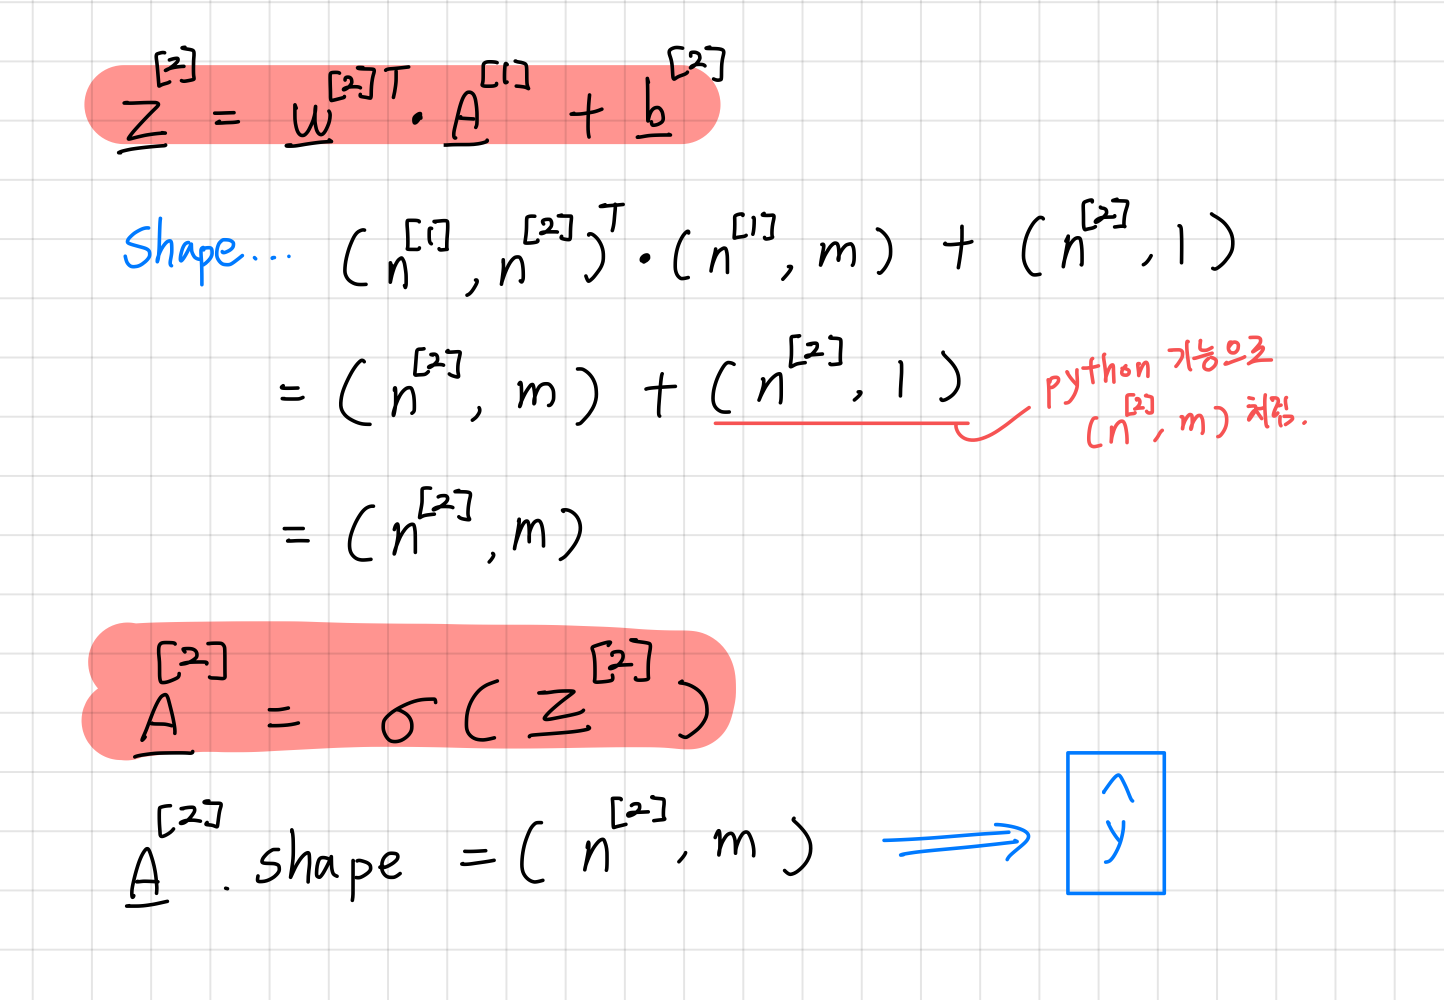 Z^[2] = W^[2]T · A^[1] + b^[2]
Shape... (n^[1], n^[2])^T · (n^[1], m) + (n^[2], 1)
= (n^[2], m) + (n^[2], 1)
python 기능으로
(n^[2], m) 처림.
= (n^[2], m)
A^[2] = σ(Z^[2])
A^[2].shape = (n^[2], m) ⟹ ŷ